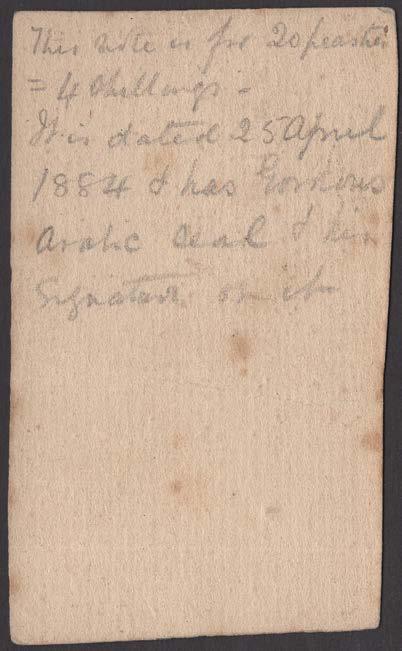 This note is for 20 peastres
= 4 shillings -
It is dated 25 April
1884 & has Gordons
Arabic seal & his
Signature on it